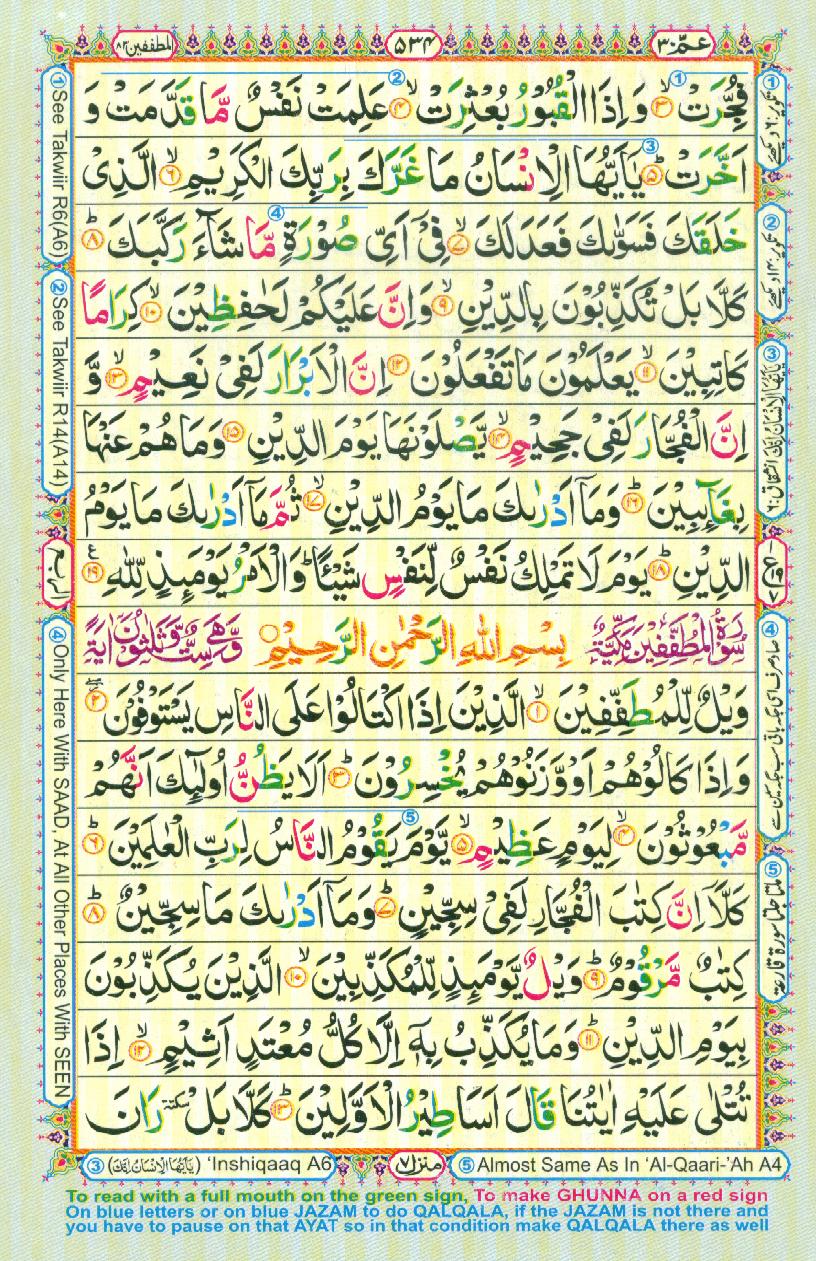 عمّ ٣٠
٥٣٤
المطففین ٨٣
فُجِّرَتْ ۙ﴿۳﴾ وَ اِذَا الْقُبُوْرُ بُعْثِرَتْ ۙ﴿۴﴾ عَلِمَتْ نَفْسٌ مَّا قَدَّمَتْ وَ
اَخَّرَتْ ؕ﴿۵﴾ یٰۤاَیُّهَا الْاِنْسَانُ مَا غَرَّكَ بِرَبِّكَ الْكَرِیْمِ ۙ﴿۶﴾ الَّذِیْ
خَلَقَكَ فَسَوّٰىكَ فَعَدَلَكَ ۙ﴿۷﴾ فِیْۤ اَیِّ صُوْرَةٍ مَّا شَآءَ رَكَّبَكَ ؕ﴿۸﴾
كَلَّا بَلْ تُكَذِّبُوْنَ بِالدِّیْنِ ۙ﴿۹﴾ وَ اِنَّ عَلَیْكُمْ لَحٰفِظِیْنَ ۙ﴿۱۰﴾ كِرَامًا
كَاتِبِیْنَ ۙ﴿۱۱﴾ یَعْلَمُوْنَ مَا تَفْعَلُوْنَ ﴿۱۲﴾ اِنَّ الْاَبْرَارَ لَفِیْ نَعِیْمٍ ۙ﴿۱۳﴾ وَّ
اِنَّ الْفُجَّارَ لَفِیْ جَحِیْمٍ ۙ﴿۱۴﴾ یَّصْلَوْنَهَا یَوْمَ الدِّیْنِ ﴿۱۵﴾ وَ مَا هُمْ عَنْهَا
بِغَآىِٕبِیْنَ ؕ﴿۱۶﴾ وَ مَاۤ اَدْرٰىكَ مَا یَوْمُ الدِّیْنِ ۙ﴿۱۷﴾ ثُمَّ مَاۤ اَدْرٰىكَ مَا یَوْمُ
الدِّیْنِ ؕ﴿۱۸﴾ یَوْمَ لَا تَمْلِكُ نَفْسٌ لِّنَفْسٍ شَیْـًٔا ؕ وَ الْاَمْرُ یَوْمَىِٕذٍ لِّلّٰهِ ﴿۱۹﴾
سُوْرَةُ الْمُطَفِّفِیْنَ مَكِّیَّةٌ بِسْمِ اللّٰهِ الرَّحْمٰنِ الرَّحِیْمِ وَّهِیَ سِتٌّ وَّثَلٰثُوْنَ اٰیَةً
وَیْلٌ لِّلْمُطَفِّفِیْنَ ۙ﴿۱﴾ الَّذِیْنَ اِذَا اكْتَالُوْا عَلَی النَّاسِ یَسْتَوْفُوْنَ ﴿۲﴾
وَ اِذَا كَالُوْهُمْ اَوْ وَّزَنُوْهُمْ یُخْسِرُوْنَ ؕ﴿۳﴾ اَلَا یَظُنُّ اُولٰٓىِٕكَ اَنَّهُمْ
مَّبْعُوْثُوْنَ ۙ﴿۴﴾ لِیَوْمٍ عَظِیْمٍ ۙ﴿۵﴾ یَّوْمَ یَقُوْمُ النَّاسُ لِرَبِّ الْعٰلَمِیْنَ ؕ﴿۶﴾
كَلَّاۤ اِنَّ كِتٰبَ الْفُجَّارِ لَفِیْ سِجِّیْنٍ ؕ﴿۷﴾ وَ مَاۤ اَدْرٰىكَ مَا سِجِّیْنٌ ؕ﴿۸﴾
كِتٰبٌ مَّرْقُوْمٌ ؕ﴿۹﴾ وَیْلٌ یَّوْمَىِٕذٍ لِّلْمُكَذِّبِیْنَ ۙ﴿۱۰﴾ الَّذِیْنَ یُكَذِّبُوْنَ
بِیَوْمِ الدِّیْنِ ؕ﴿۱۱﴾ وَ مَا یُكَذِّبُ بِهٖۤ اِلَّا كُلُّ مُعْتَدٍ اَثِیْمٍ ۙ﴿۱۲﴾ اِذَا
تُتْلٰی عَلَیْهِ اٰیٰتُنَا قَالَ اَسَاطِیْرُ الْاَوَّلِیْنَ ؕ﴿۱۳﴾ كَلَّا بَلْ سكتة رَانَ
① See Takwiir R6(A6)
② See Takwiir R14(A14)
الربع
④ Only Here With SAAD, At All Other Places With SEEN
③ (یٰۤاَیُّهَا الْاِنْسَانُ اِنَّكَ) 'Inshiqaaq A6
منزل ٧
⑤ Almost Same As In 'Al-Qaari-'Ah A4
To read with a full mouth on the green sign, To make GHUNNA on a red sign
On blue letters or on blue JAZAM to do QALQALA, if the JAZAM is not there and
you have to pause on that AYAT so in that condition make QALQALA there as well